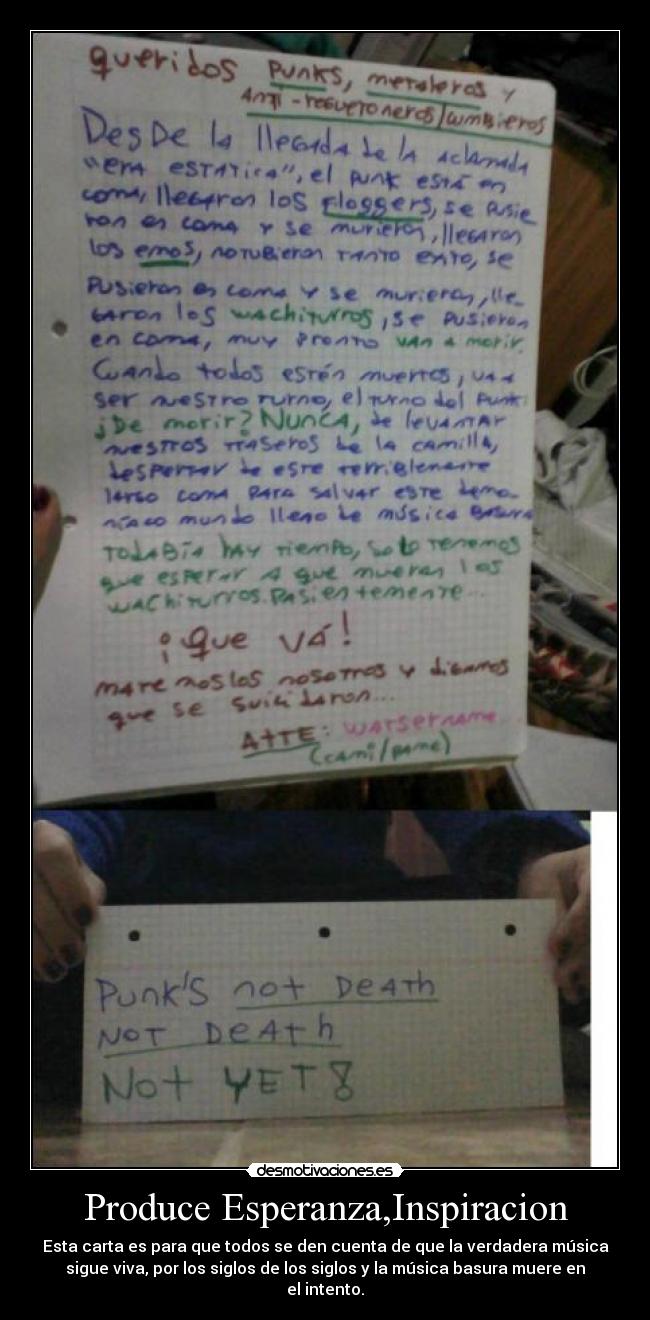 queridos PUNKS, metaleros y
Anti-regueToneros/cumbieros
DesDe la llegada de la aclamada
"era estatica", el punk está en
coma, llegaron los floggers, se pusie
ron en coma y se murieron, llegaron
los emos, no tubieron tanto exito, se
pusieron en coma y se murieron, lle-
garon los wachiturros, se pusieron
en coma, muy pronto van a morir.
Cuando todos estén muertos, va a
ser nuestro turno, el turno del punk.
¿De morir? Nunca, de levantar
nuestros traseros de la camilla,
despertar de este terriblemente
largo coma para salvar este demo-
níaco mundo lleno de música basura
Todabía hay tiempo, solo tenemos
que esperar a que mueran los
wachiturros. Pasientemente...
¡Que vá!
matemoslos nosotros y digamos
que se suicidaron...
Atte: Watsername
(cami/pame)
Punk's not Death
Not Death
Not YET!
desmotivaciones.es
Produce Esperanza,Inspiracion
Esta carta es para que todos se den cuenta de que la verdadera música
sigue viva, por los siglos de los siglos y la música basura muere en
el intento.